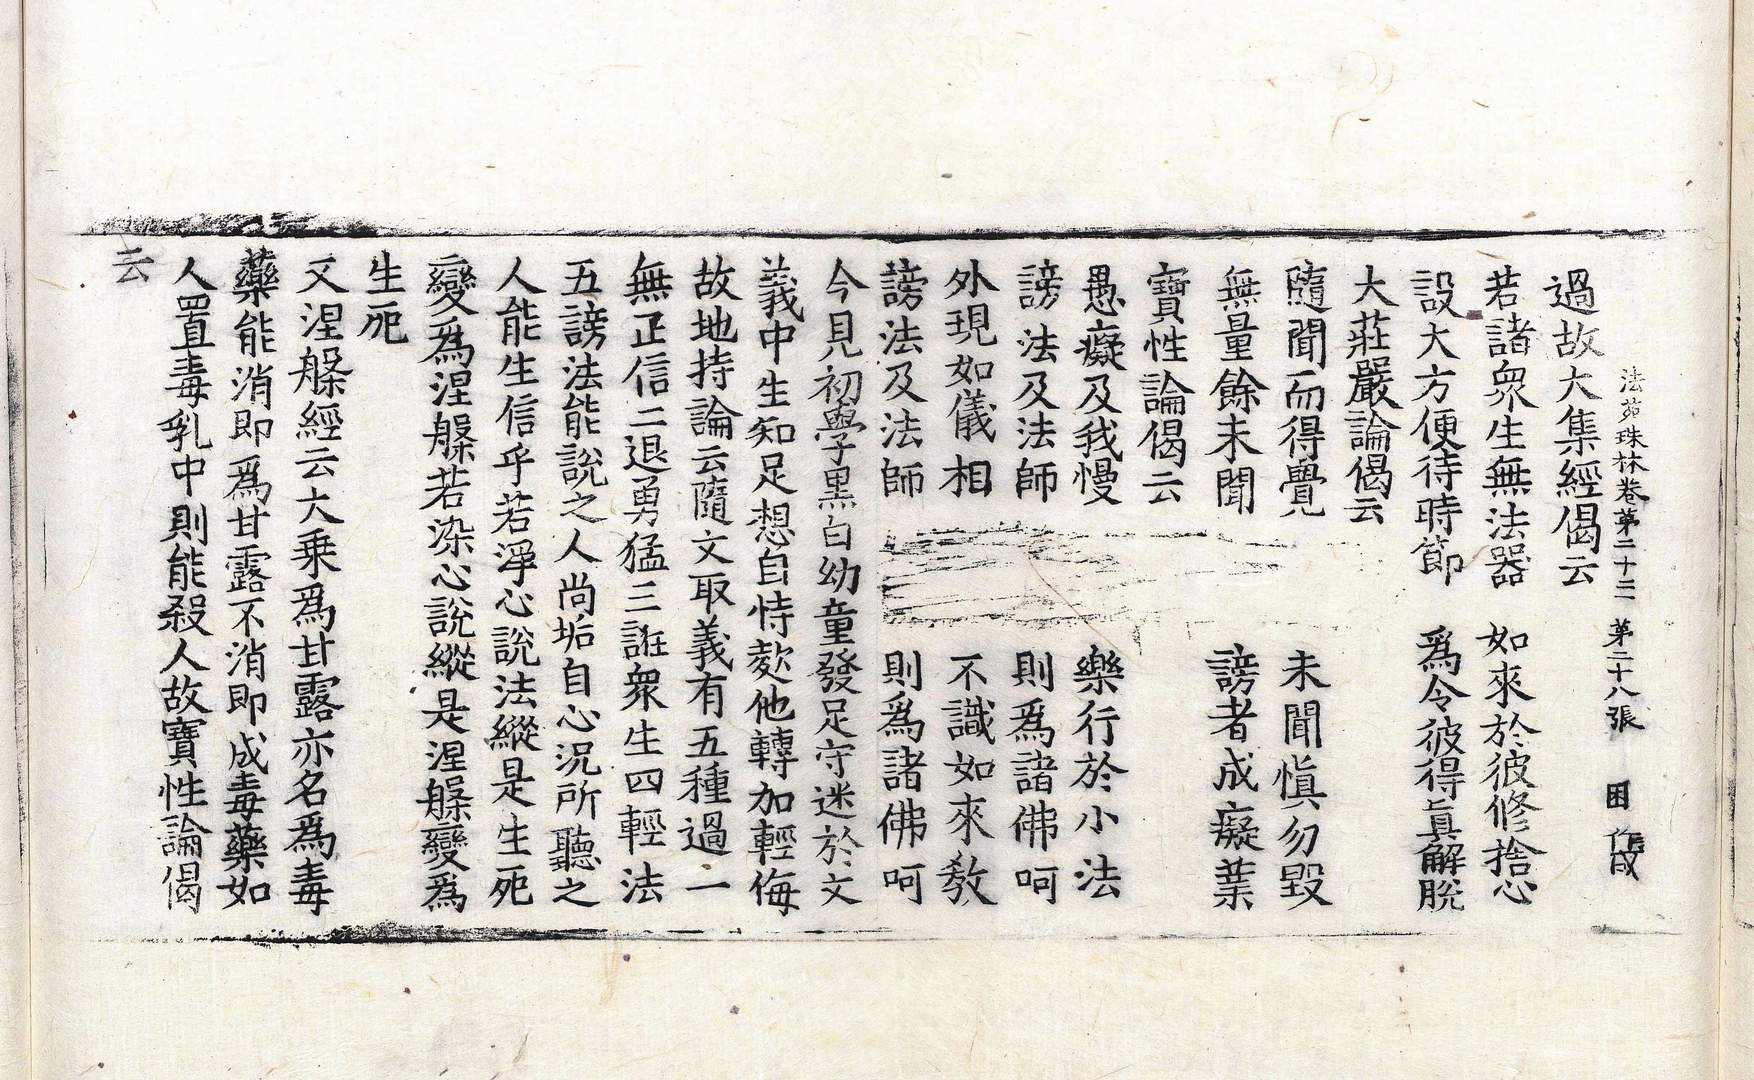 法苑珠林卷第二十三 第二十八張 困 作戌
過故大集經偈云
若諸衆生無法器 如來於彼修捨心
設大方便待時節 爲令彼得眞解脫
大莊嚴論偈云
隨聞而得覺 未聞愼勿毀
無量餘未聞 謗者成癡業
寶性論偈云
愚癡及我慢 樂行於小法
謗法及法師 則爲諸佛呵
外現如儀相 不識如來教
謗法及法師 則爲諸佛呵
今見初學黑白幼童發足守迷於文
義中生知足想自恃欺他轉加輕侮
故地持論云隨文取義有五種過一
無正信二退勇猛三誑衆生四輕法
五謗法能說之人尚垢自心況所聽之
人能生信乎若淨心說法縱是生死
變爲涅槃若染心說縱是涅槃變爲
生死
又涅槃經云大乗爲甘露亦名爲毒
藥能消即爲甘露不消即成毒藥如
人置毒乳中則能殺人故寶性論偈
云